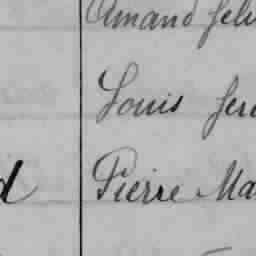 Amand Feli
Louis Fer
d Pierre Ma